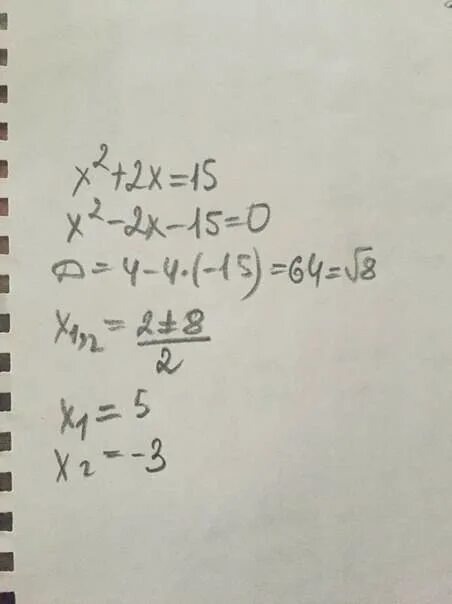 x²+2x=15
x²-2x-15=0
D=4-4·(-15)=64=√8
x₁,₂=(2±8)/2
x₁=5
x₂=-3